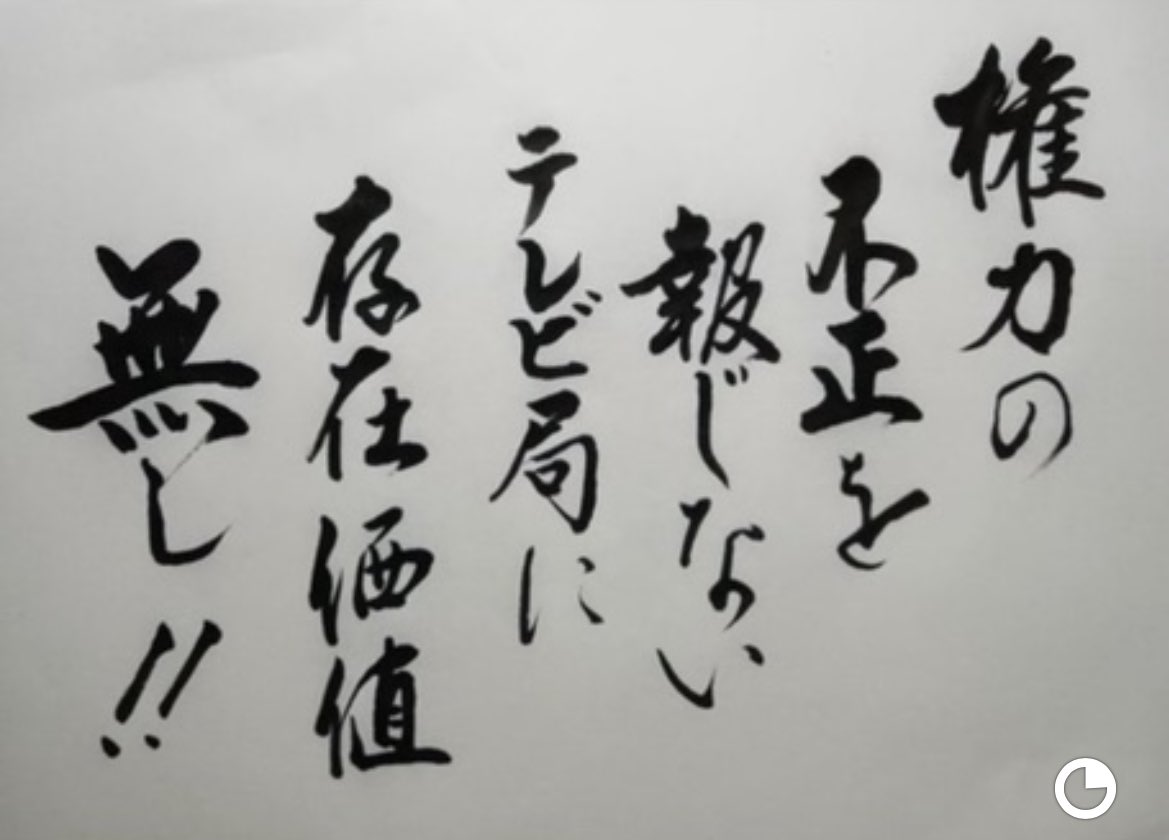 権力の
不正を
報じない
テレビ局に
存在価値
無し!!